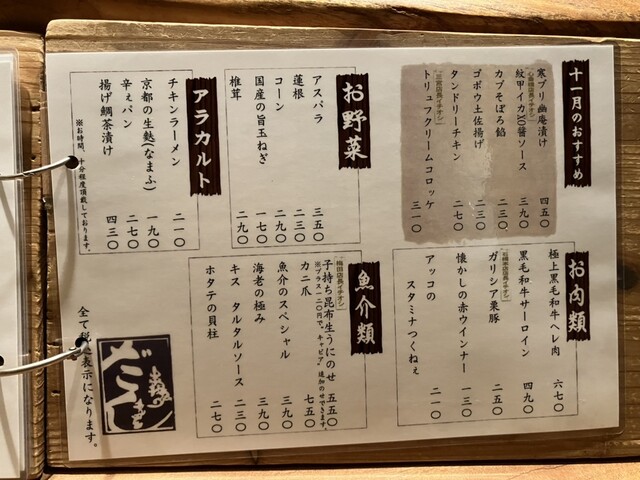 十一月のおすすめ
寒ブリ幽庵漬け 四五〇
紋甲イカXO醬ソース 三九〇
カブそぼろ餡 二三〇
ゴボウ土佐揚げ 二三〇
タンドリーチキン 二七〇
トリュフクリームコロッケ 三一〇
お野菜
アスパラ 三五〇
蓮根
コーン 二三〇
国産の旨玉ねぎ 一七〇
椎茸 二九〇
アラカルト
チキンラーメン 二一〇
京都の生麩(なまふ) 一九〇
辛ぇパン 二七〇
揚げ鯛茶漬け 四三〇
※お時間、十分程度頂戴しております。
お肉類
極上黒毛和牛ヘレ肉 六七〇
黒毛和牛サーロイン 四九〇
ガリシア栗豚 二五〇
懐かしの赤ウインナー 一三〇
アッコの
スタミナつくねぇ 二一〇
魚介類
梅田店長イチオシ
子持ち昆布生うにのせ 五五〇
※プラス一二〇円で、キャビア追加のせできます。
カニ爪 七五〇
魚介のスペシャル 三九〇
海老の極み 三九〇
キス タルタルソース 二三〇
ホタテの貝柱 二七〇
全て税込表示になります。